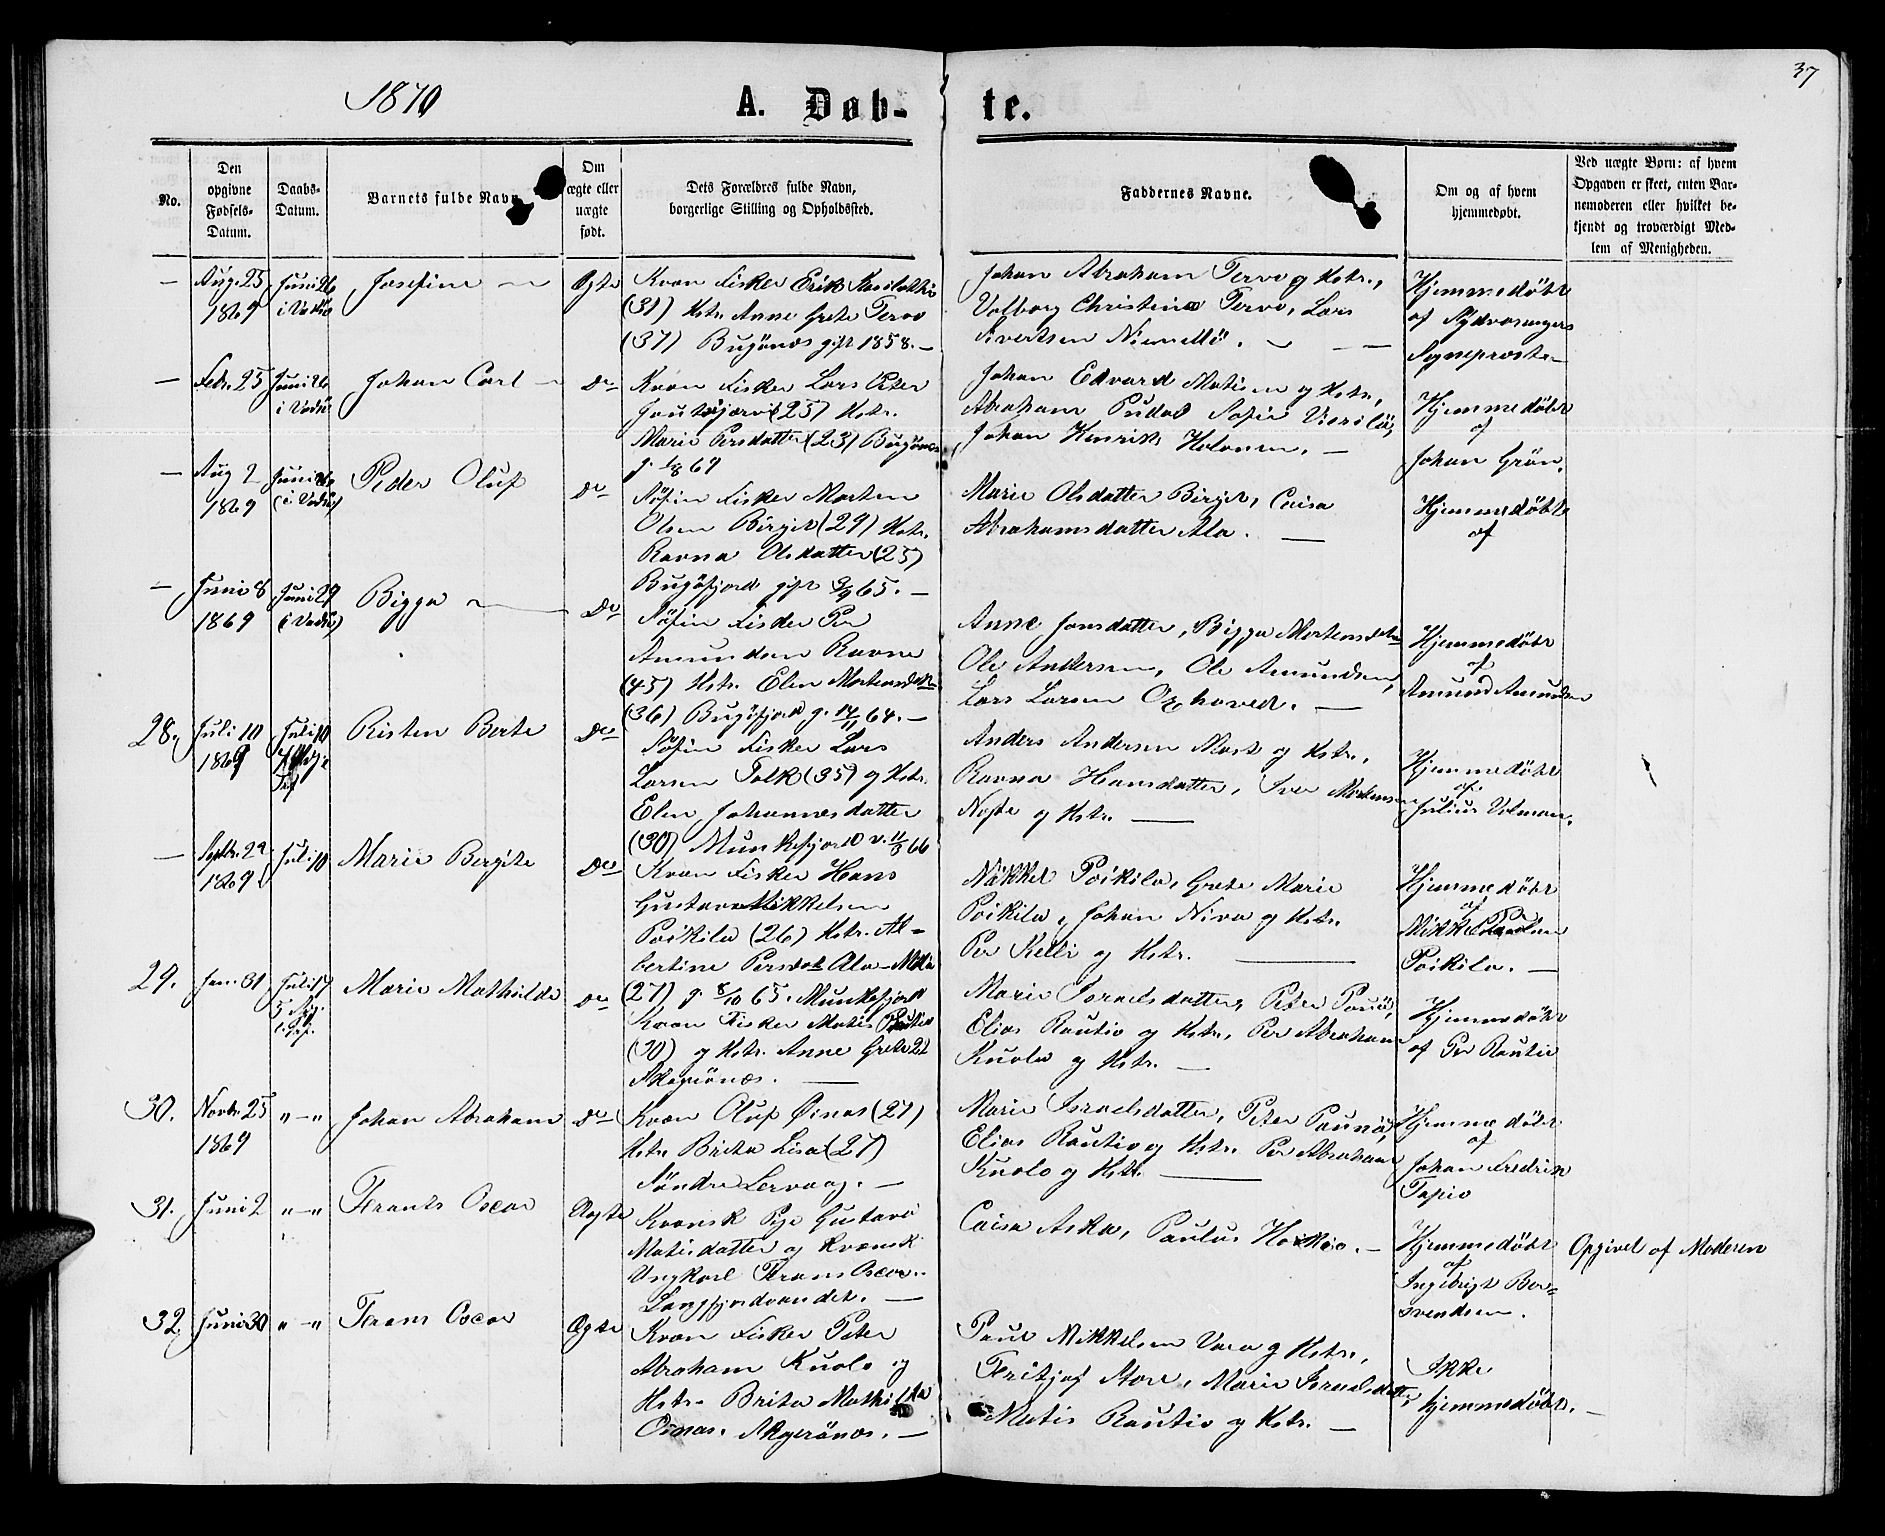 37
1870
A. Døb-te.
No.
Den opgivne Fødsels-Datum.
Daabs-Datum.
Barnets fulde Navn
Om ægte eller uægte født.
Dets Forældres fulde Navn, borgerlige Stilling og Opholdssted.
Faddernes Navne.
Om og af hvem hjemmedøbt.
Ved uægte Børn: af hvem Opgaven er skeet, enten Barnemoderen eller hvilket bekjendt og troværdigt Medlem af Menigheden.
— Aug. 25 1869
Juni 26 i Vadsø
Josefine —
Ægte
Kvæn Fisker Erik
(31) Hstr. Anne Grete Tervo
(37) Bugønæs gift 1858. —
Johan Abraham Tervo og Hstr.,
Volborg Christina Tervo, Lars
Sivertsen Niemellö. — —
Hjemmedøbt
af Sydvaranger
— Febr. 25
Juni 26 i Vadsø
Johan Carl —
Do
Kvæn Fisker Lars Peter
(25) Hstr.
Marie Persdatter (23) Bugønæs
g. 1/8 69
Johan Edvard Matisen og Hstr.,
Abraham Pudas Sofie
Johan Henrik Holonen. —
Hjemmedøbt
af
Johan Grøn.
— Aug 2 1869
Juni 26 (i Vadsø)
Peder Oluf
Do
Søfin Fisker Morten
Olsen Birget (29) Hstr.
Ravna Olsdatter (25)
Bugøfjord gift 65. —
Marie Olsdatter Birget, Caisa
Abrahamsdatter Ala. —
Hjemmedøbt
af
— Juni 8 1869
Juni 29 (i Vadsø)
Bigga —
Do
Søfin Fisker Per
Amundsen Ravna
(45) Hstr. Elen Mortensdatter
(36) Bugøfjord g. 14/11 64. —
Anne Jonsdatter, Bigga Mortensdatter
Ole Andersen, Ole Amundsen,
Lars Larsen Oxhoved. —
Hjemmedøbt
af
Amund Amundsen
28. Juli 10 1869
Juli 10
Risten Berte
Do
Søfin Fisker Lars
Larsen Tolk (35) og Hstr.
Elen Johannesdatter
(30) Munkefjord v. 11/3 66
Anders Andersen Mast og Hstr.,
Ravna Hansdatter, Iver Mortensen
Noste og Hstr. —
Hjemmedøbt
af
Julius Volman.
— Septbr. 29 1869
Juli 10
Marie Bergite
Do
Kvæn Fisker Hans
Gustav Mikkelsen
Poikila (26) Hstr. Al-
bertine Persdat Ala
(27) g. 8/10 65. Munkefjord
Nikkel Poikila, Grete Marie
Poikila, Johan Niva og Hstr.
Per Kelli og Hstr. —
Hjemmedøbt
af
Mikkel
Poikila. —
29. Jan. 31
Juli 17
Marie Mathilde
Do
Kvæn Fisker Matis Rautio
(30) og Hstr. Anne Grete 22
Marie Israelsdatter, Peter
Elias Rautio og Hstr., Per Abraham
Kuolo og Hstr. —
Hjemmedøbt
af Per Rautio
30. Novbr. 25 1869
" — "
Johan Abraham
Do
Kvæn Oluf Oinas (27)
Hstr. Brita Lisa (27)
Søndre Lervaag. —
Marie Israelsdatter, Peter
Elias Rautio og Hstr. Per Abraham
Kuolo og Hstr. —
Hjemmedøbt
af
Johan Fredrik
Tapio
31. Juni 2
" — "
Frants Oscar
Uægte
Kvænsk Pige Gustava
Matisdatter og Kvænsk
Ungkarl Frans Oscar
Langfjordvandet. —
Caisa Aska, Paulus —
Hjemmedøbt
af
Ingebrigt
Opgivet af Moderen
32. Juni 30
" — "
Frans Oscar
Ægte
Kvæn Fisker Peter
Abraham Kuolo og
Hstr. Brita Mathilda
Oinas. —
Paul Mikkelsen Vara og Hstr.,
Fritjof More, Marie Israelsdatter
Matis Rautio og Hstr. —
Ikke
hjemmedøbt. —